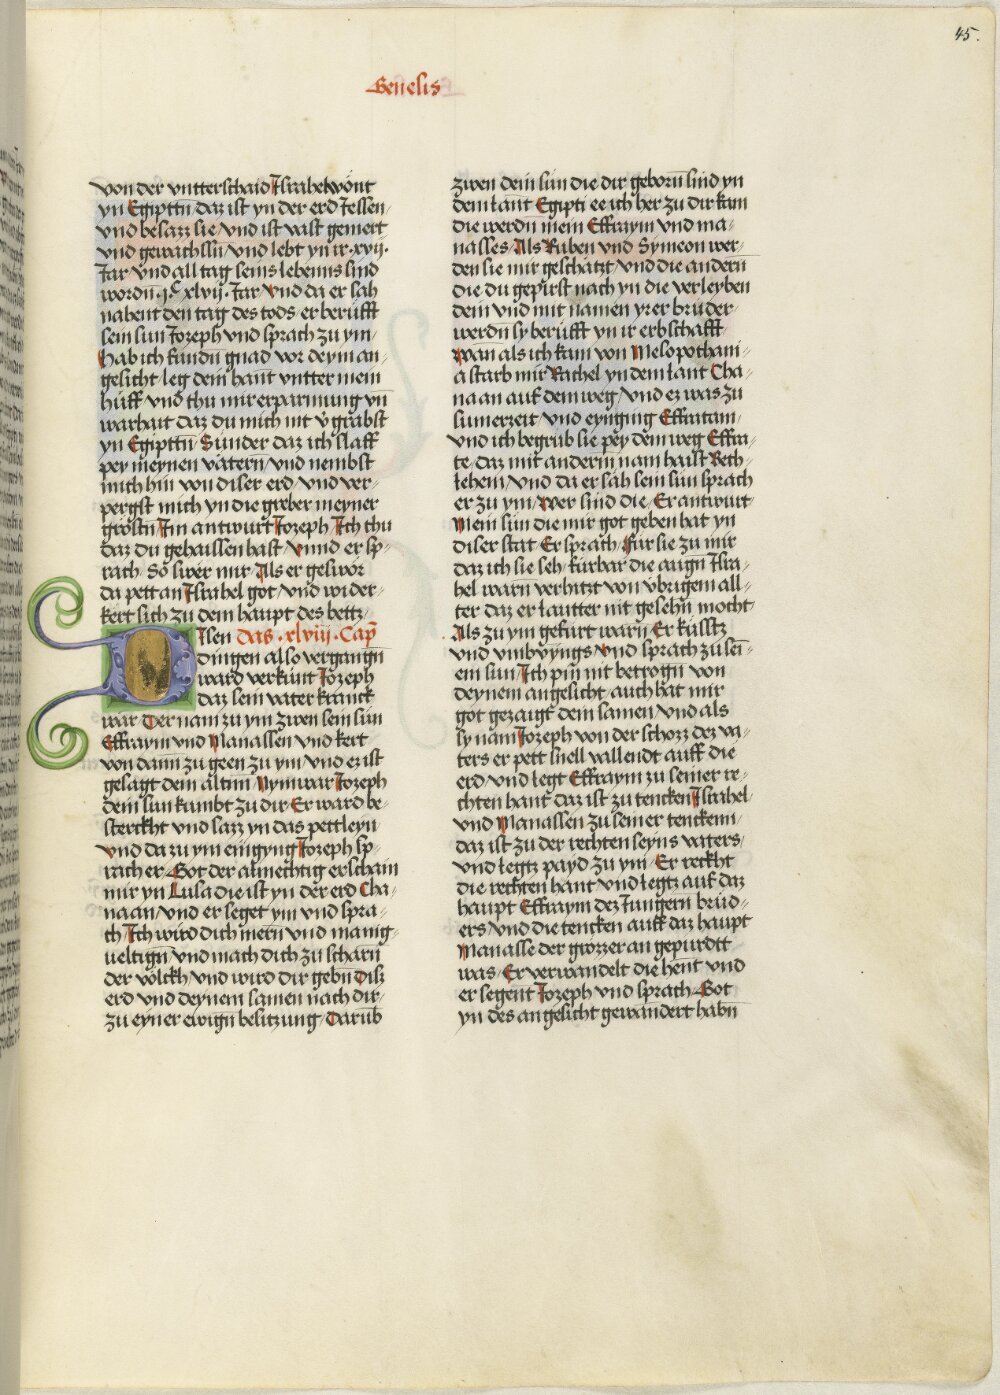 45.
Genesis
von der vntterschaid Israhel wont
yn Egipttn daz ist yn der erd Jessen
vnd besazz sie vnd ist vast gemert
vnd gewachssn vnd lebt yn ir .xvij.
Jar vnd all tag seins lebenns sind
wordn .jC xlvij. Jar vnd da er sah
nahent den tag des tods er berufft
sein sun Jozeph vnd sprach zu ym
hab ich fundn gnad vor deym an¬
gesicht leg dein hant vntter mein
huff vnd thu mir erparmung vn
warhait daz du mich nit v̇grabst
yn Egipttn Sunder daz ich slaff
pey meynen vatern vnd nembst
mich hin von diser erd vnd ver¬
pergst mich yn die greber meyner
grostn Im antwurt Jozeph Ich thu
daz du gehaissen hast vnnd er sp¬
rach So swer mir Als er geswor
da pett an Israhel got vnd wider¬
kert sich zu dem haupt des bettz
Disen das .xlviij. Cap
dingen also vergangn
ward verkunt Jozeph
daz sein vater kranck
war Der nam zu ym zwen sein sun
Effraym vnd Manassen vnd kert
von dann zu geen zu ym vnd ez ist
gesagt dem altnn Nym war Jozeph
dein sun kumbt zu dir Er ward be¬
sterckht vnd sazz yn das pettleyn
vnd da zu ym eingyng Jozeph sp¬
rach er Got der almechtig erschain
mir yn Lusa die ist yn der erd Cha¬
naan vnd er seget ym vnd spra¬
ch Ich wird dich mern vnd manig¬
ueltign vnd mach dich zu scharn
der volckh vnd wird dir gebn Disz
erd vnd deynem samen nach dir
zu eyner ewign besitzung Darub
zwen dein sun die dir geborn sind yn
dem lant Egipti ee ich her zu dir kam
die werdn mein Effraym vnd ma¬
nasses Als Ruben vnd Symeon wer¬
den sie mir geschatzt vnd die andern
die du gepirst nach yn die verleyben
dein vnd mit namen yrer bruder
werdn sy berufft yn ir erbschafft
wan als ich kam von Mesopothani¬
a starb mir Rachel yn dem lant Cha¬
naan auf dem weg vnd ez was zu
sumerzeit vnd eynging Effratam
vnd ich begrub sie pey dem weg Effra¬
te daz mit anderm nam haist Beth¬
lehem vnd da er sah sein sun sprach
er zu ym wer sind die Er antwurt
Mein sun die mir got geben hat yn
diser stat Er sprach Fur sie zu mir
daz ich sie seh furbar die augn Isra¬
hel warn verhitzt von vbrigem all¬
ter daz er lautter nit gesehn mocht
Als zu ym gefurt warn Er kusstz
vnd vmbvyngs vnd sprach zu sei¬
em sun Ich pin nit betrogn von
deynem angesicht auch hat mir
got gezaigt dein samen vnd als
sy nam Jozeph von der schozz dez va¬
ters er pett snell vallendt auff die
erd vnd legt Effraym zu seiner re¬
chten hant daz ist zu tencken Israhel
vnd Manassen zu seiner tenckenn
daz ist zu der rechten seyns vaters
vnd legtz payd zu ym Er reckht
die rechten hant vnd legtz auf daz
haupt Effraym dez Jungern brud¬
ers vnd die tencken auff daz haupt
Manasse der grozzer an gepurdtt
was Er verwandelt die hent vnd
er segent Jozeph vnd sprach Got
yn des angesicht gewandert habn